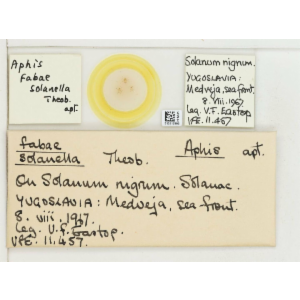 Aphis
fabae
solanella
Theob.
apt.
Solanum nigrum.
YUGOSLAVIA:
Medveja, sea front.
8.viii.1967
leg. V.F. Eastop
VFE. 11.457
fabae
solanella Theob. Aphis apt.
On Solanum nigrum. Solanac.
YUGOSLAVIA: Medveja, sea front.
8. viii. 1967.
Leg. V.F. Eastop.
VFE. 11.457.